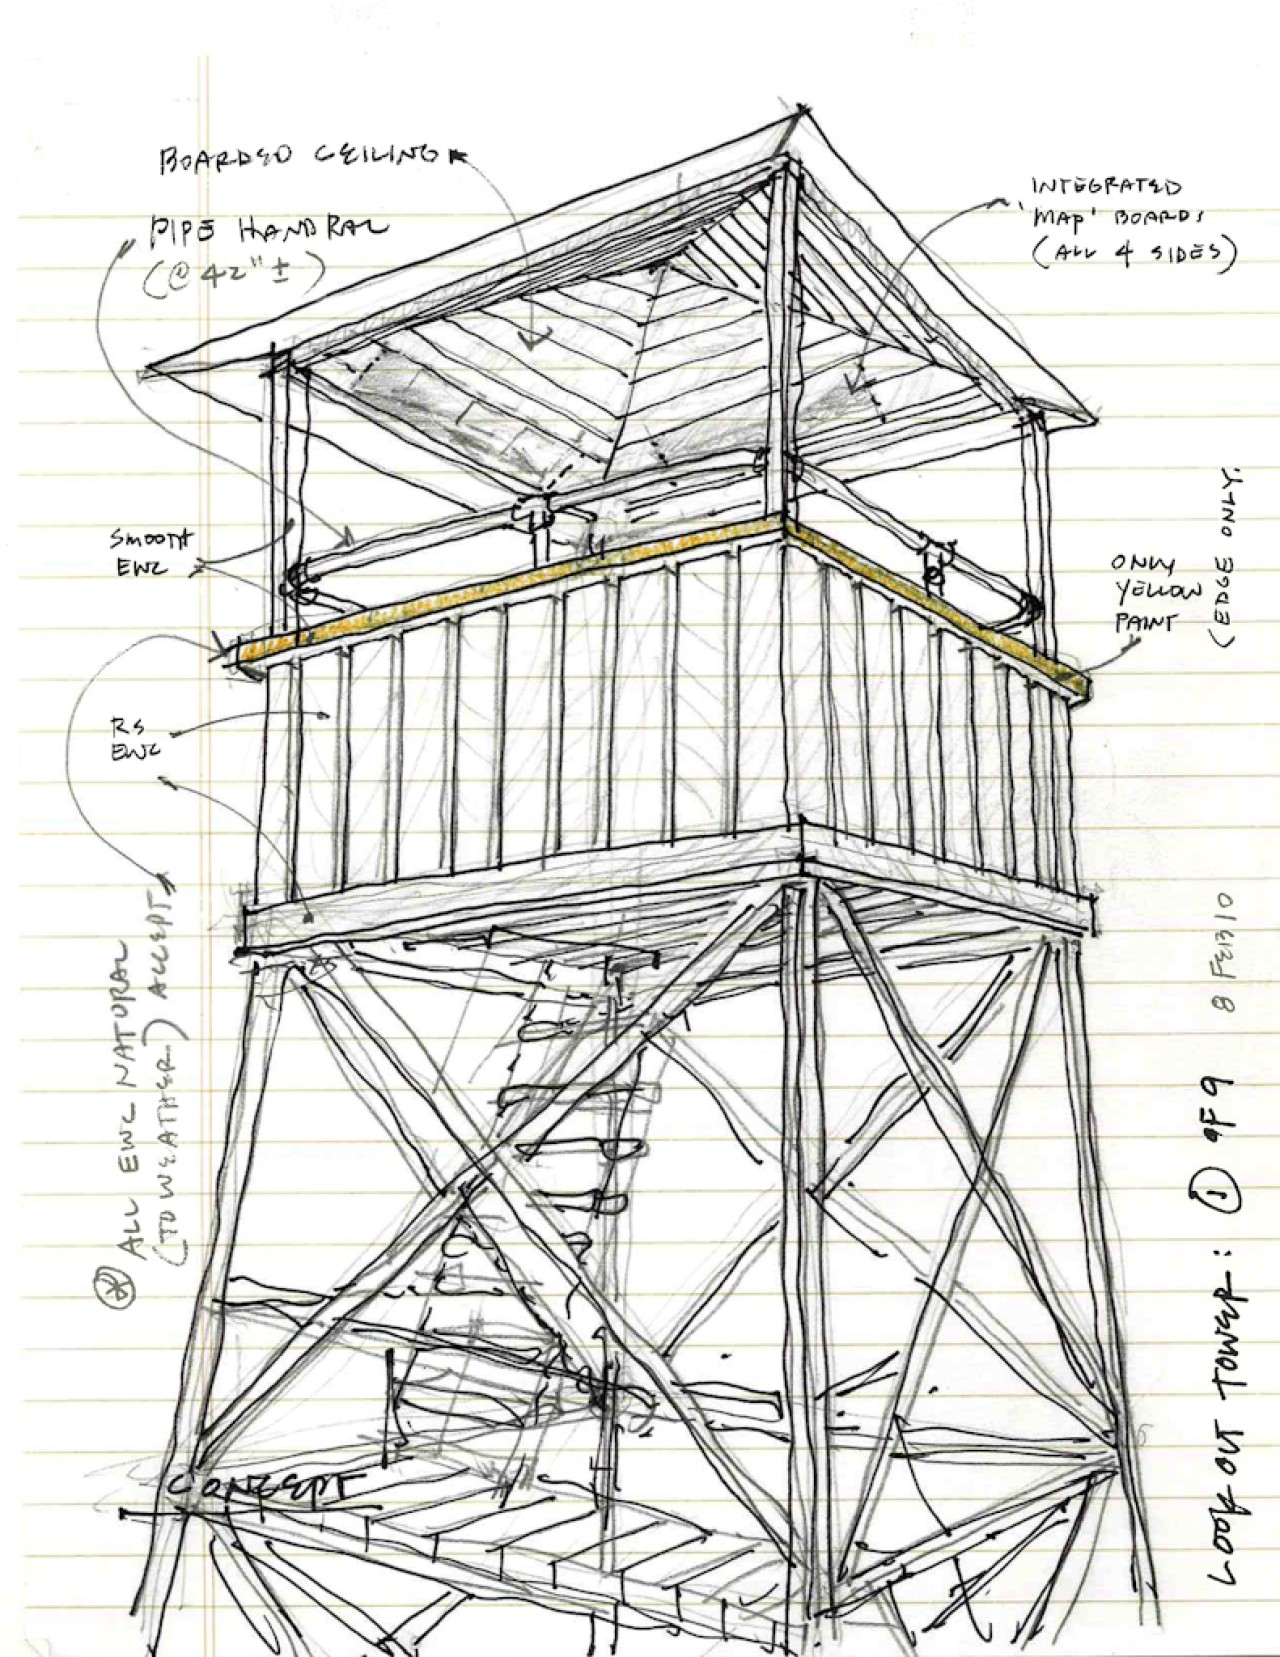 BOARDED CEILING
PIPE HANDRAL
(@ 42" ±)
INTEGRATED
'MAP' BOARDS
(ALL 4 SIDES)
SMOOTH
EWC
ONLY
YELLOW
PAINT
(EDGE ONLY.
RS
EWC
* ALL EWC NATURAL
(TO WEATHER) ACCEPT
8 FEB 10
LOOK OUT TOWER: 1 OF 9
CONCEPT